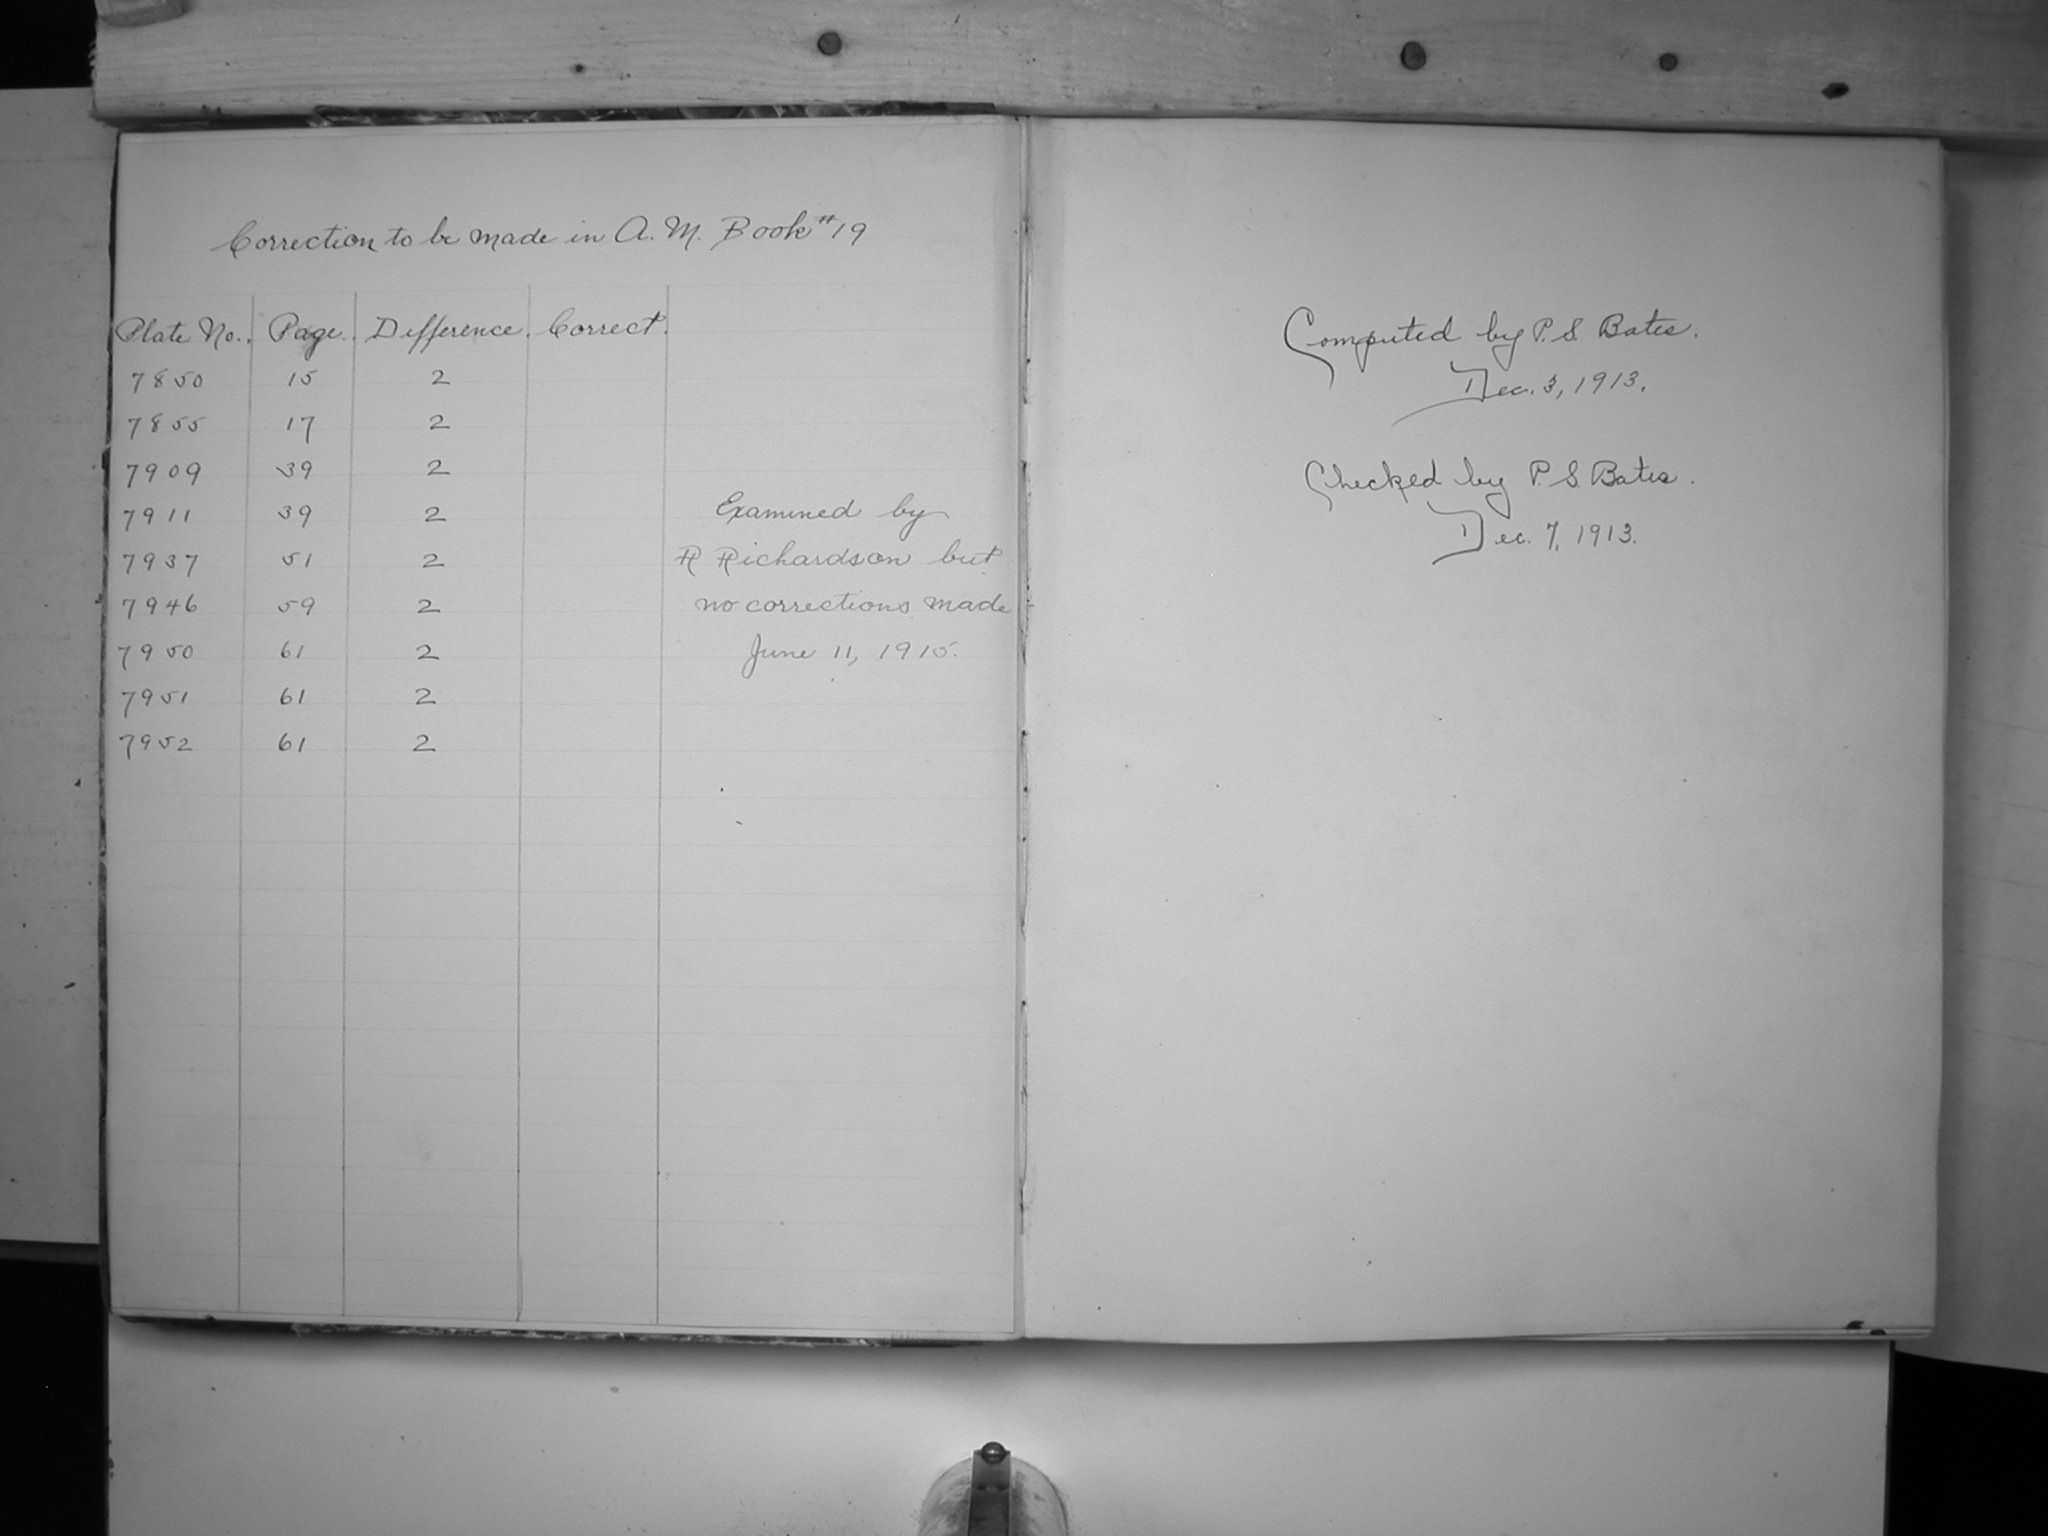 Correction to be made in A. M. Book #19
Plate No. Page. Difference. Correct.
7850 15 2
7855 17 2
7909 39 2
7911 39 2
7937 51 2
7946 59 2
7950 61 2
7951 61 2
7952 61 2
Examined by
R Richardson but
no corrections made
June 11, 1915.
Computed by P. S. Bates.
Dec. 3, 1913.
Checked by P. S. Bates.
Dec. 7, 1913.